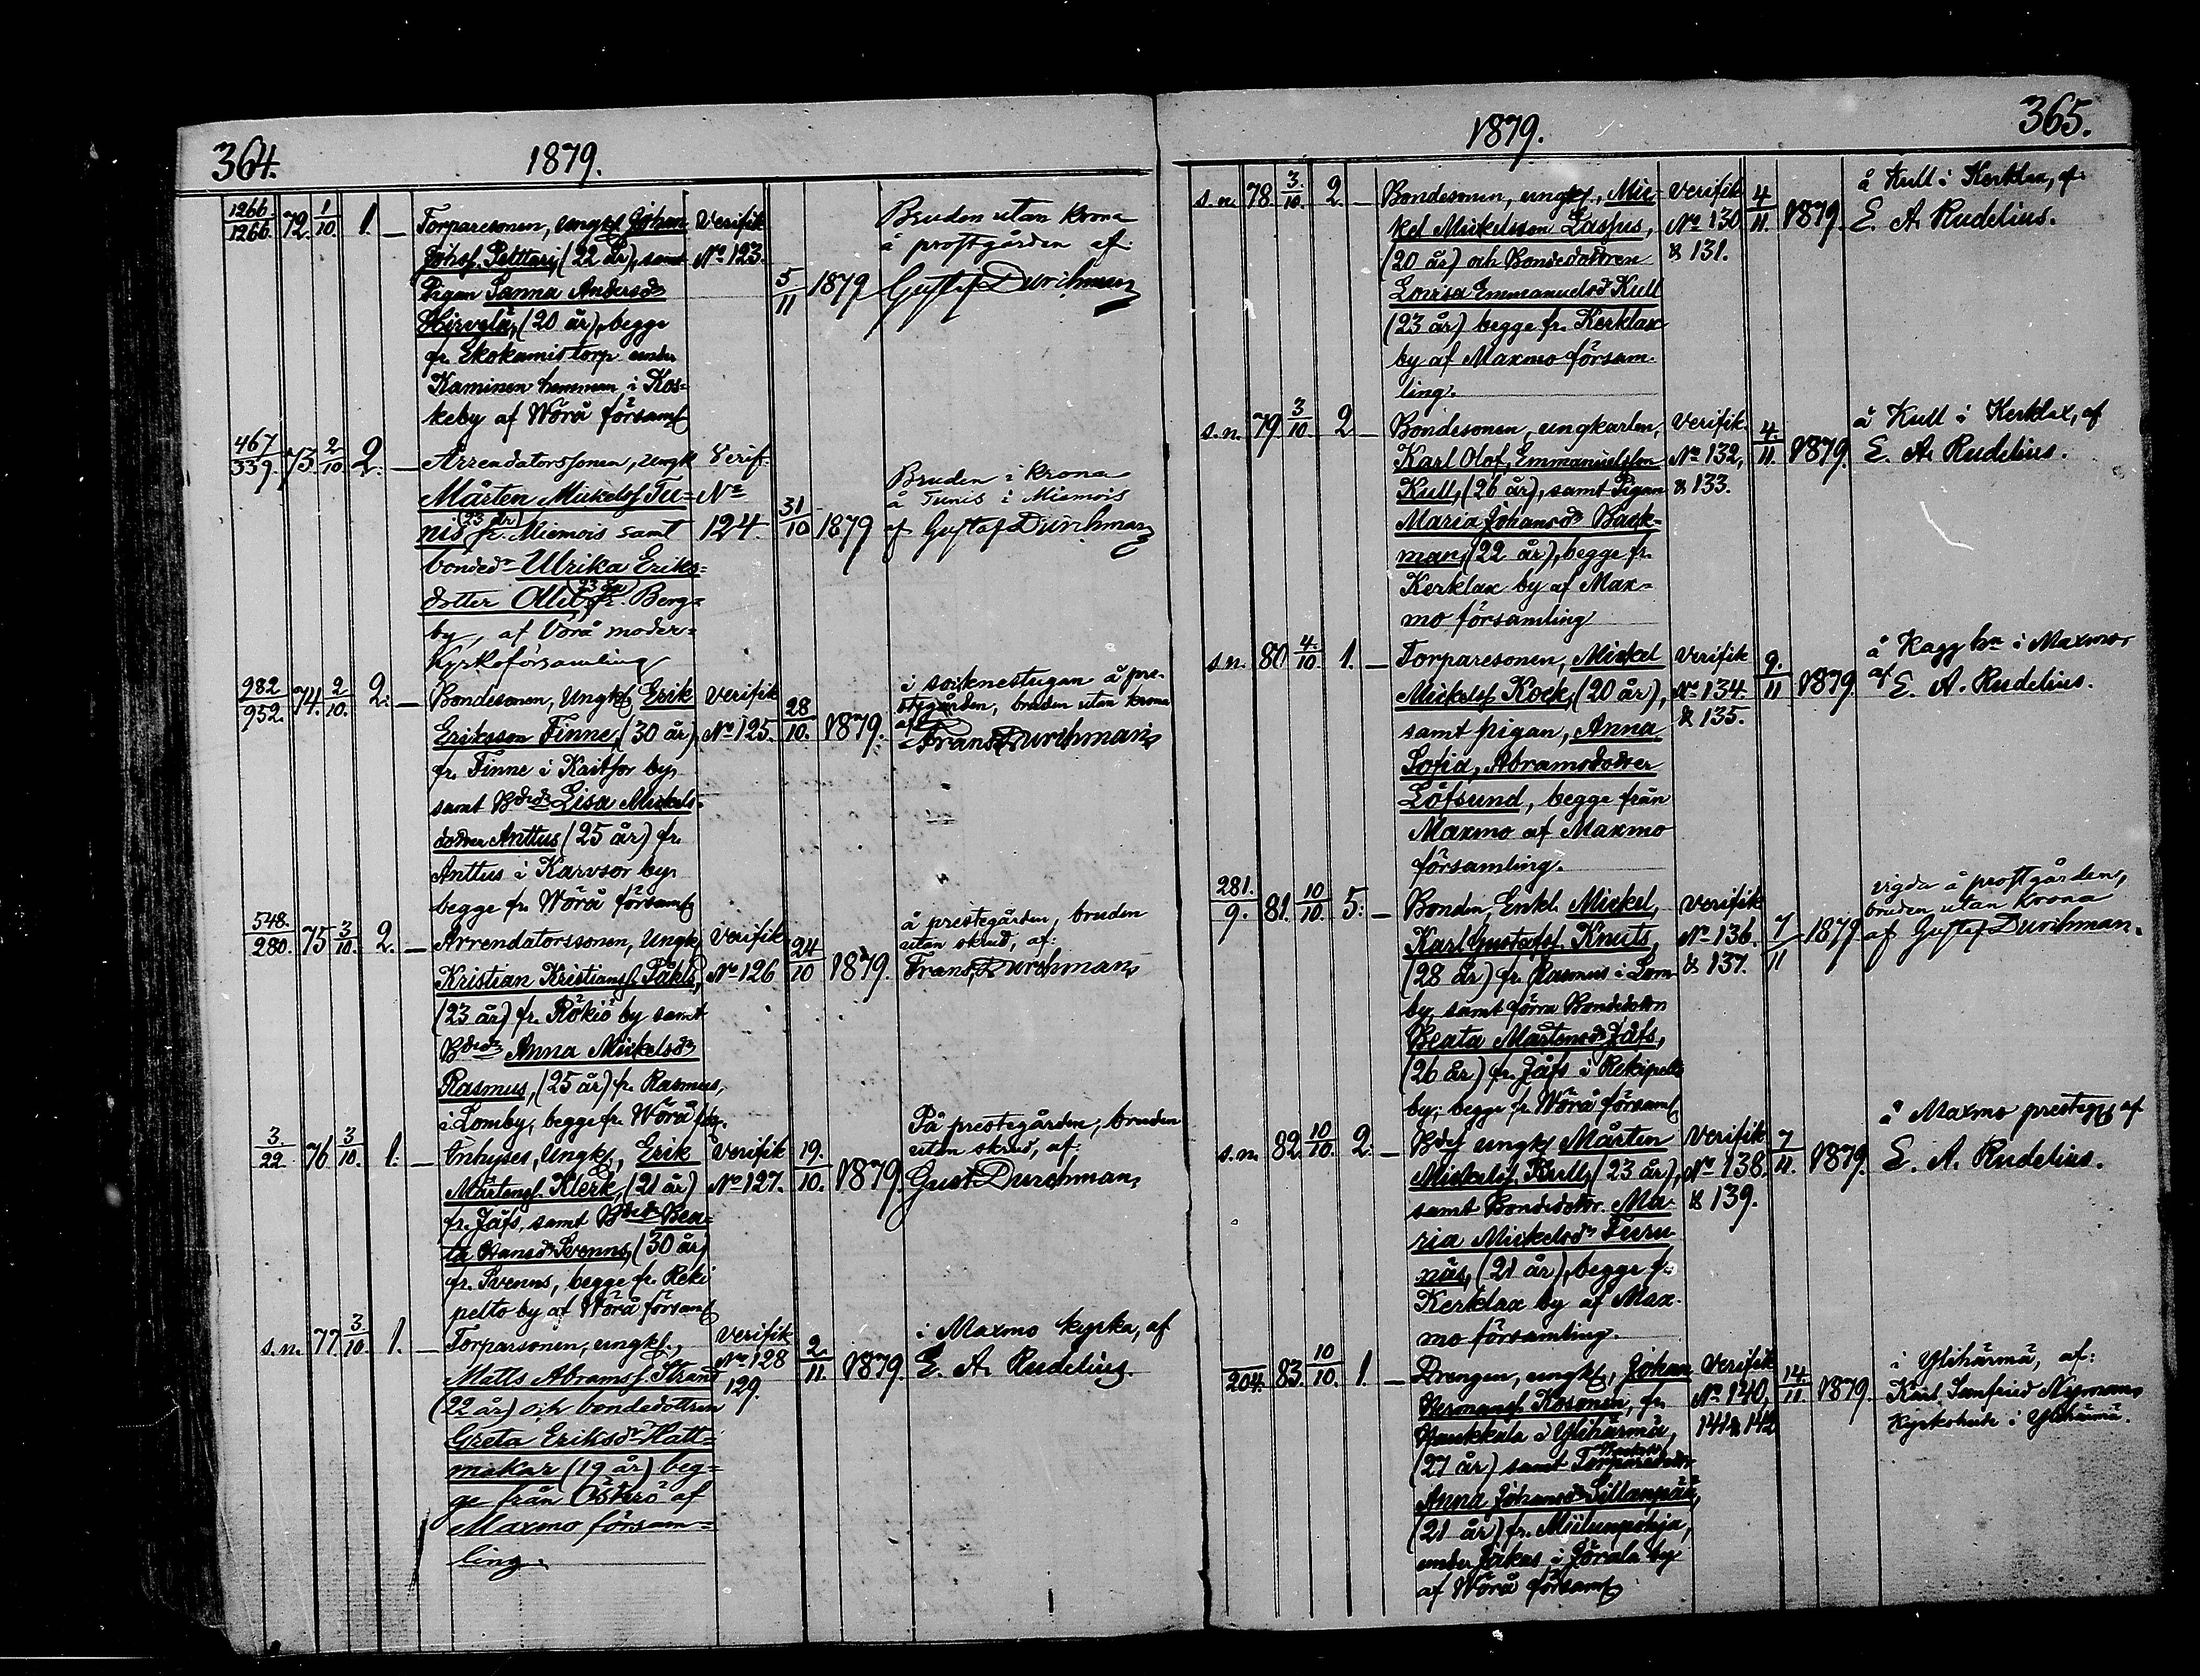 364.
1879.
1266
1266. 72. 1/10. 1. — Torparesonen, ungk. Johan Verifik Bruden utan krona
Johsf. Pelttari, (22 år), samt No 123. å prostgården af:
Pigan Sanna Andersdr 5/11 1879 Gustaf Durchman
Hirvelä, (20 år), begge
fr. Ekokamis torp under
Kaminen hemman i Kos-
keby af Wörå församl
467
339. 73. 2/10. 2. — Arrendatorssonen, ungk Verif. Bruden i krona
Mårten Mickelsf. Tu- No å Tunis i Miemois
nis (23 år) fr. Miemois samt 124. 31/10 1879 af Gustaf Durchman
bondedr Ulrika Eriks-
dotter Ollis (23 år) fr. Berg-
by, af Vörå moder-
kyrkoförsamling
982
952. 74. 2/10. 2. — Bondesonen, Ungk. Erik Verifik i socknestugan å pre-
Eriksson Finne, (30 år) No 125. 28/10. 1879. stgården, bruden utan krona
fr. Finne i Kaitsor by, af Frans Durchman
samt Bdedr Lisa Mickels-
dotter Anttus (25 år) fr.
Anttus i Karvsor by,
begge fr. Wörå församl
548.
280. 75 3/10. 2. — Arrendatorssonen, Ungk. Verifik å prestegården, bruden
utan skrud, af:
Kristian Kristiansf. Påkls, No 126 24/10 1879. Frans Durchman
(23 år) fr. Rökiö by samt
Bdedr Anna Mickelsdr
Rasmus, (25 år) fr. Rasmus,
i Lomby, begge fr. Wörå för.
3.
22. 76 3/10. 1. — Inhyses, Ungk., Erik Verifik På prestegården, bruden
utan skrud, af:
Mårtensf. Klerk, (21 år) No 127. 19./10. 1879. Gust. Durchman
fr. Jåfs, samt Bdedr Bea-
ta Hansdr Svenns, (30 år)
fr. Svenns, begge fr. Reki
pelto by af Wörå församl
s.n. 77 3/10. 1. — Torparsonen, ungk., Verifik i Maxmo kyrka, af
Matts Abramsf. Strand No 128 2./11. 1879. E. A. Rudelius.
(22 år) och bondedottren 129.
Greta Eriksdr Hatt-
makar (19 år) beg-
ge från Österö af
Maxmo försam-
ling.
365.
1879.
s.n. 78 3./10. 2. — Bondesonen, ungk., Mic- Verifik å Kull i Kerklax, af
kel Mickelsson Laspus, No 130 4/11. 1879. E. A. Rudelius.
(20 år) och Bondedottren & 131.
Lovisa Emmanuelsd Kull
(23 år) begge fr. Kerklax
by af Maxmo försam-
ling.
s.n. 79. 3/10. 2 — Bondesonen, ungkarlen, Verifik. å Kull i Kerklax, af
Karl Olof, Emmanuelsson No 132, 4./11. 1879. E. A. Rudelius.
Kull, (26 år), samt Pigan & 133.
Maria Johansdr Back-
man, (22 år), begge fr.
Kerklax by af Max-
mo församling
s.n. 80 4./10. 1. — Torparesonen, Mickel Verifik å Kagg hn i Maxmo
Mickelsf. Kock, (20 år), No 134. 9./11 1879. af E. A. Rudelius.
samt pigan, Anna & 135.
Sofia, Abramsdotter
Löfsund, begge från
Maxmo af Maxmo
församling.
281.
9. 81. 10/10. 5. — Bonden, Enkl. Mickel, Verifik vigda å prostgården,
bruden utan krona
Karl Gustafsf. Knuts, No 136. 7/11 1879 af Gustaf Durchman.
(28 år) fr. Rasmus i Lom & 137.
by, samt förra Bondedotter
Beata Mårtensdr Jåfs,
(26 år) fr. Jåfs i Rekipelto
by; begge fr. Wörå församl
s.n. 82. 10/10. 2. — Bdes ungk. Mårten Verifik å Maxmo prestegd af
Mickelsf. Kull, (23 år), No 138. 7/11. 1879. E. A. Rudelius.
samt Bondedottr. Ma- & 139.
ria Mickelsdr Furu
näs, (21 år), begge fr.
Kerklax by af Max-
mo församling.
204. 83. 10/10. 1. — Drengen, ungk., Johan Verifik i Ylihärmä, af:
Hermansf. Kosonen, fr. No 140, 14./11. 1879. Karl Sanfrid Nyman
Haukkala i Ylihärmä, 141 & 142 Kyrkoherde i Ylihärmä.
(27 år) samt Torparedotter
Anna Johansdr Sillanpää,
(21 år) fr. Miilunpohja,
under Jåkas i Jörala by
af Wörå församl